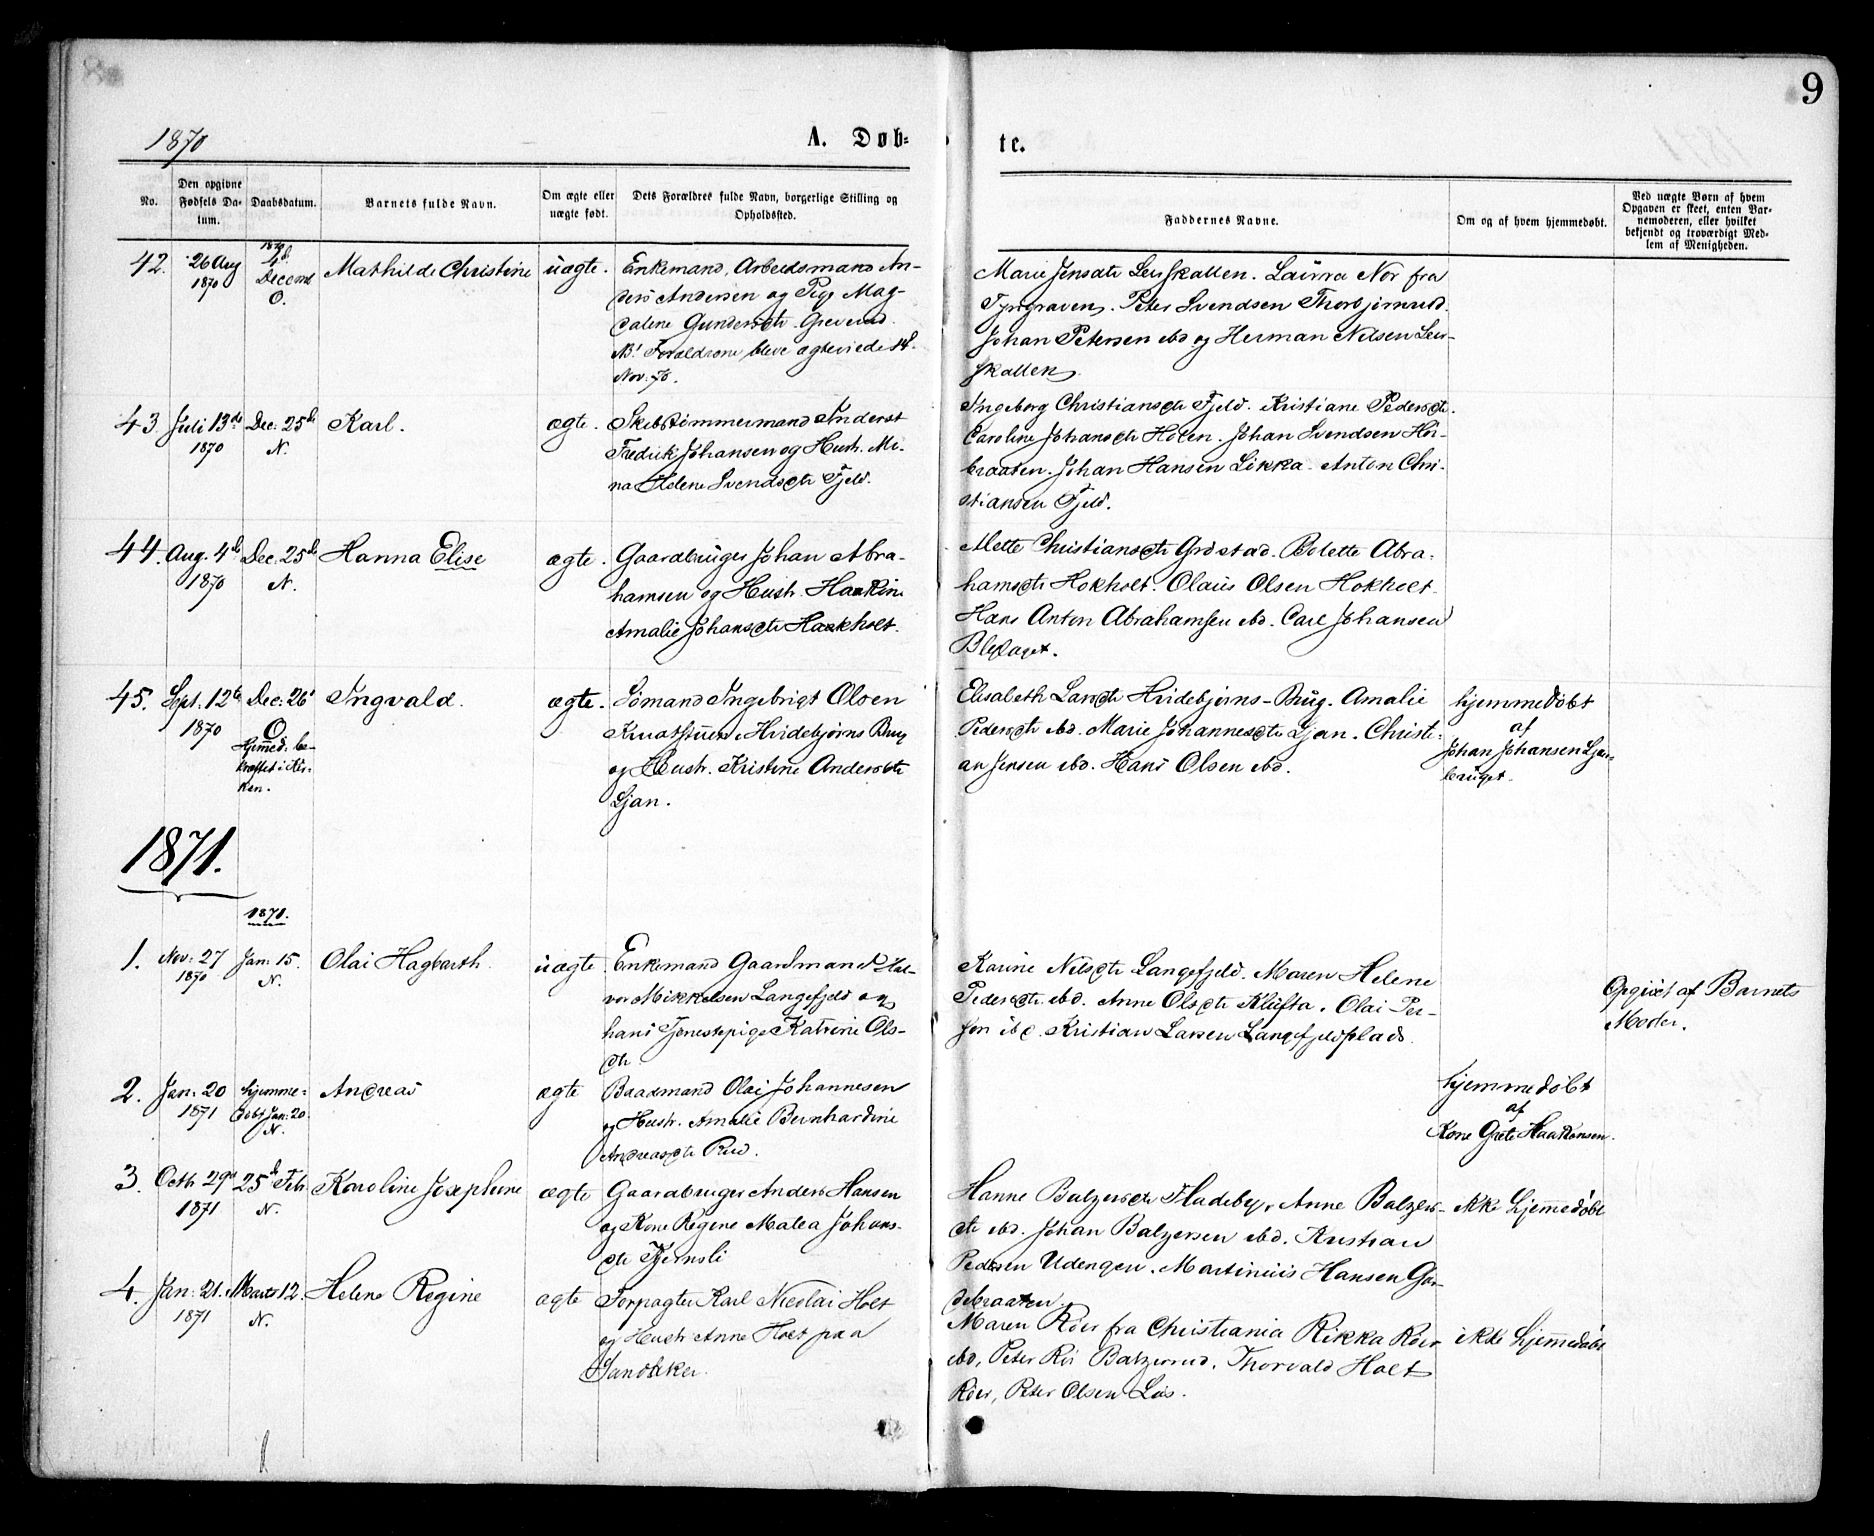 9
1870
A. Døb-
te.
No.
Den opgivne Fødsels Datum.
Daabsdatum.
Barnets fulde Navn.
Om ægte eller uægte født.
Dets Forældres fulde Navn, borgerlige Stilling og Opholdssted.
Faddernes Navne.
Om og af hvem hjemmedøbt.
Ved uægte Børn af hvem Opgaven er skeet, enten Barnemoderen, eller hvilket bekjendt og troværdigt Medlem af Menigheden.
42.
26 Aug
1870
1870
4de
Decemb
O.
Mathilde Christine
uægte.
Enkemand, Arbeidsmand An-
ders Andersen og Pige Mag-
dalene Gundersdtr
NB! Forældrene bleve ægteviede 14de
Nov. 70.
Marie Jensdtr Lerskallen. Laura Nor fra
Tyrigraven. Peter Svendsen Thorbjørnrud.
Johan Petersen ibd og Herman Nilsen Ler-
skallen.
43
Juli 13de
1870
Dec. 25de
N.
Karl.
ægte.
Skibstømmermand
Fredrik Johansen og Hustr. Mi-
na Helene Svendsdtr Fjeld.
Ingeborg Christiansdtr Fjeld. Kristiane Pedersdtr.
Caroline Johansdtr Holen. Johan Svendsen Hør-
braaten. Johan Hansen Likka. Anton Chri-
stiansen Fjeld.
44.
Aug. 4de
1870
Dec. 25de
N.
Hanna Elise
ægte.
Gaardbruger Johan Abra-
hamsen og Hustr. Haakine
Amalie Johansdtr Haakholt.
Mette Christiansdtr Grøstad. Bolette Abra-
hamsdtr Hokholt. Olaus Olsen Hokholt.
Hans Anton Abrahamsen ibd. Carl Johansen
Bleslaget.
45.
Sept. 12te
1870
Dec. 26'
O
Hjemmed. be-
kræftet i Kir-
ken.
Ingvald.
ægte.
Sømand Ingebrigt Olsen
Knatstuen, Hvidebjørns Brug
og Hustr. Kristine Andersdtr
Ljan.
Elisabeth Larsdtr Hvidebjørns-Brug. Amalie
Pedersdtr ibd. Marie Johannesdtr Ljan. Christi-
an Jensen ibd. Hans Olsen ibd.
hjemmedøbt
af
Johan Johansen Ljan-
bruget.
1871.
1871.
1.
Nov. 27
1870
Jan. 15.
N.
Olai Hagbarth.
uægte
Enkemand Gaardmand Hal-
vor Mikkelsen Langefjeld og
hans Tjenestepige Katrine Ols-
dtr
Karine Nilsdtr Langefjeld. Maren Helene
Pedersdtr ibd. Anne Olsdtr Klufta. Olai Per-
sen ibd. Kristian Larsen Langefjeldplads.
Opgivet af Barnets
Moder.
2.
Jan. 20
1871
hjemme-
døbt Jan. 20.
N.
Andreas
ægte
Baadmand Olai Johannesen
og Hustr. Amalie Bernhardine
Andreasdtr Rud.
hjemmedøbt
af
Kone Grete Haakonsen.
3.
Octbr 29de
1871
25de Febr
N.
Karoline Josephine
ægte
Gaardbruger Anders Hansen
og Kone Regine Malea Johans-
dtr Tjernsli
Hanne Balzersdtr Fladeby, Anne Balzers-
dtr ibd. Johan Balzersen ibd. Kristian
Pedersen Udengen. Martinius Hansen Ga-
debraaten.
ikke hjemmedøbt
4.
Jan. 21.
1871
Marts 12.
N.
Helene Regine
ægte
Forpagter Karl Nicolai Holt
og Hustr Anne Holt paa
Sandbakken.
Maren Röer fra Christiania Rikka Röer
ibd, Peter Röi Balzerrud. Thorvald Holt
Röer, Peter Olsen Lös.
ikke hjemmedøbt